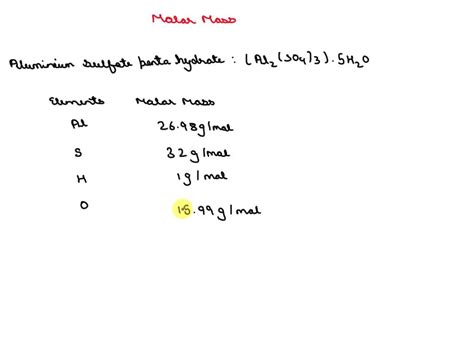 Molar Mass
Aluminium sulfate penta hydrate : (Al₂(SO₄)₃).5H₂O
Elements Molar Mass
Al 26.98g/mol
S 32g/mol
H 1g/mol
O 15.99g/mol